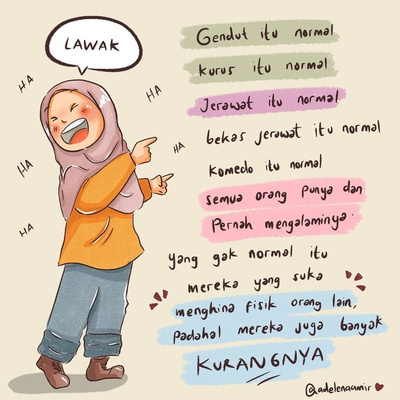 LAWAK
HA
HA
HA
HA
HA
Gendut itu normal
kurus itu normal
Jerawat itu normal
bekas jerawat itu normal
komedo itu normal
semua orang punya dan
Pernah mengalaminya.
yang gak normal itu
mereka yang suka
menghina fisik orang lain,
Padahal mereka juga banyak
KURANGNYA
@adelenaamir